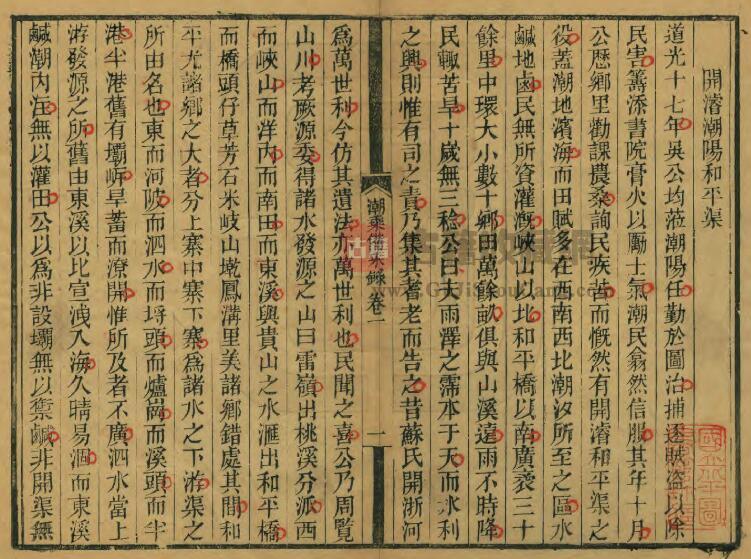 開濬潮陽和平渠
道光十七年吳公均蒞潮陽任勤於圖治捕逐賊盜以除
民害籌添書院膏火以勵士氣潮民翕然信服其年十月
公歷鄉里勸課農桑詢民疾苦而慨然有開濬和平渠之
役蓋潮地濱海而田賦多在西南西北潮汐所至之區水
鹹地鹵民無所資灌漑峽山以北和平橋以南廣袤三十
餘里中環大小數十鄉田萬餘畝俱與山溪遠雨不時降
民輒苦旱十歲無三稔公曰天雨澤之霈本于天而水利
之興則惟有司之責乃集其耆老而告之昔蘇氏開浙河
潮乘備采錄卷一
一
爲萬世利今仿其遺法亦萬世利也民聞之喜公乃周覽
山川考厥源委得諸水發源之山曰雷嶺出桃溪分派西
而峽山而洋內而南田而東溪與貴山之水滙出和平橋
而橋頭仔草芳石米岐山墘鳳溝里美諸鄉錯處其間和
平尤諸鄉之大者分上寨中寨下寨爲諸水之下游渠之
所由名也東而河陂而泗水而埓頭而爐崗而溪頭而半
港半港舊有壩岍旱蓄而潦開惟所及者不廣泗水當上
游發源之所舊由東溪以比宣洩入海久晴易涸而東溪
鹹潮內注無以灌田公以爲非設壩無以禦鹹非開渠無